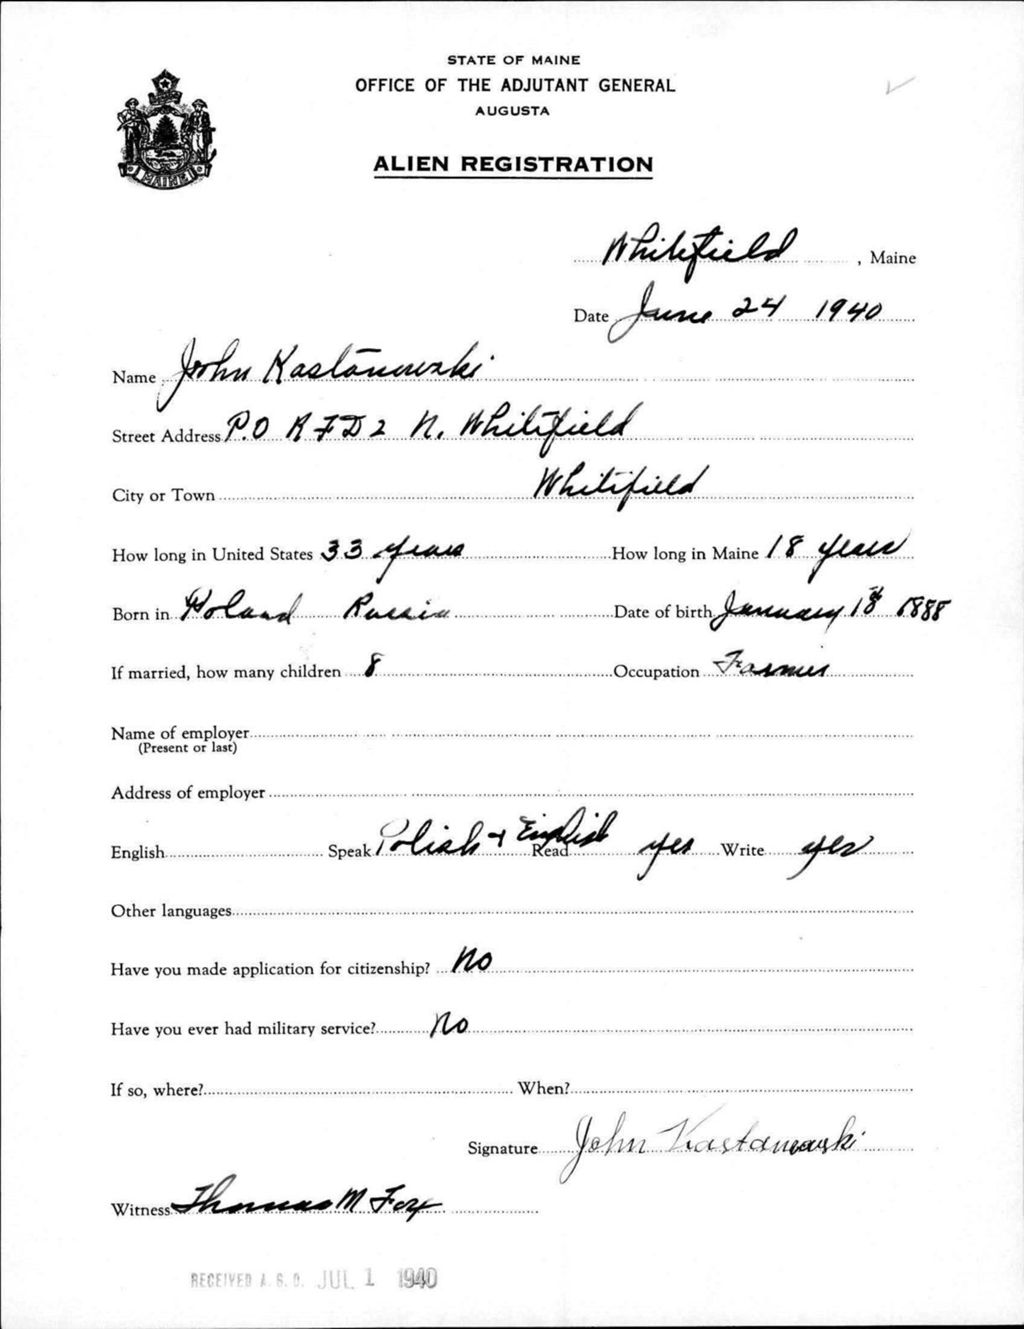 STATE OF MAINE
OFFICE OF THE ADJUTANT GENERAL
AUGUSTA
ALIEN REGISTRATION
MAINE
Whitefield, Maine
Date June 24 1940
Name John Kastanowski
Street Address P.O RFD2 N. Whitefield
City or Town Whitefield
How long in United States 33 years How long in Maine 18 years
Born in Poland Russia Date of birth January 18 1888
If married, how many children 8 Occupation Farmer
Name of employer
(Present or last)
Address of employer
English Speak Polish + English Read yes Write yes
Other languages
Have you made application for citizenship? No
Have you ever had military service? No
If so, where? When?
Signature John Kastanowski
Witness Thomas M Fox
RECEIVED A. G. O. JUL 1 1940